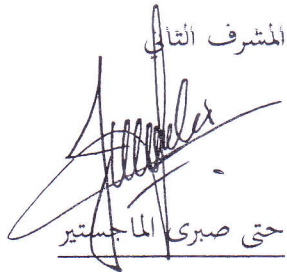 المشرف الثاني
حتى صبرى الماجستير